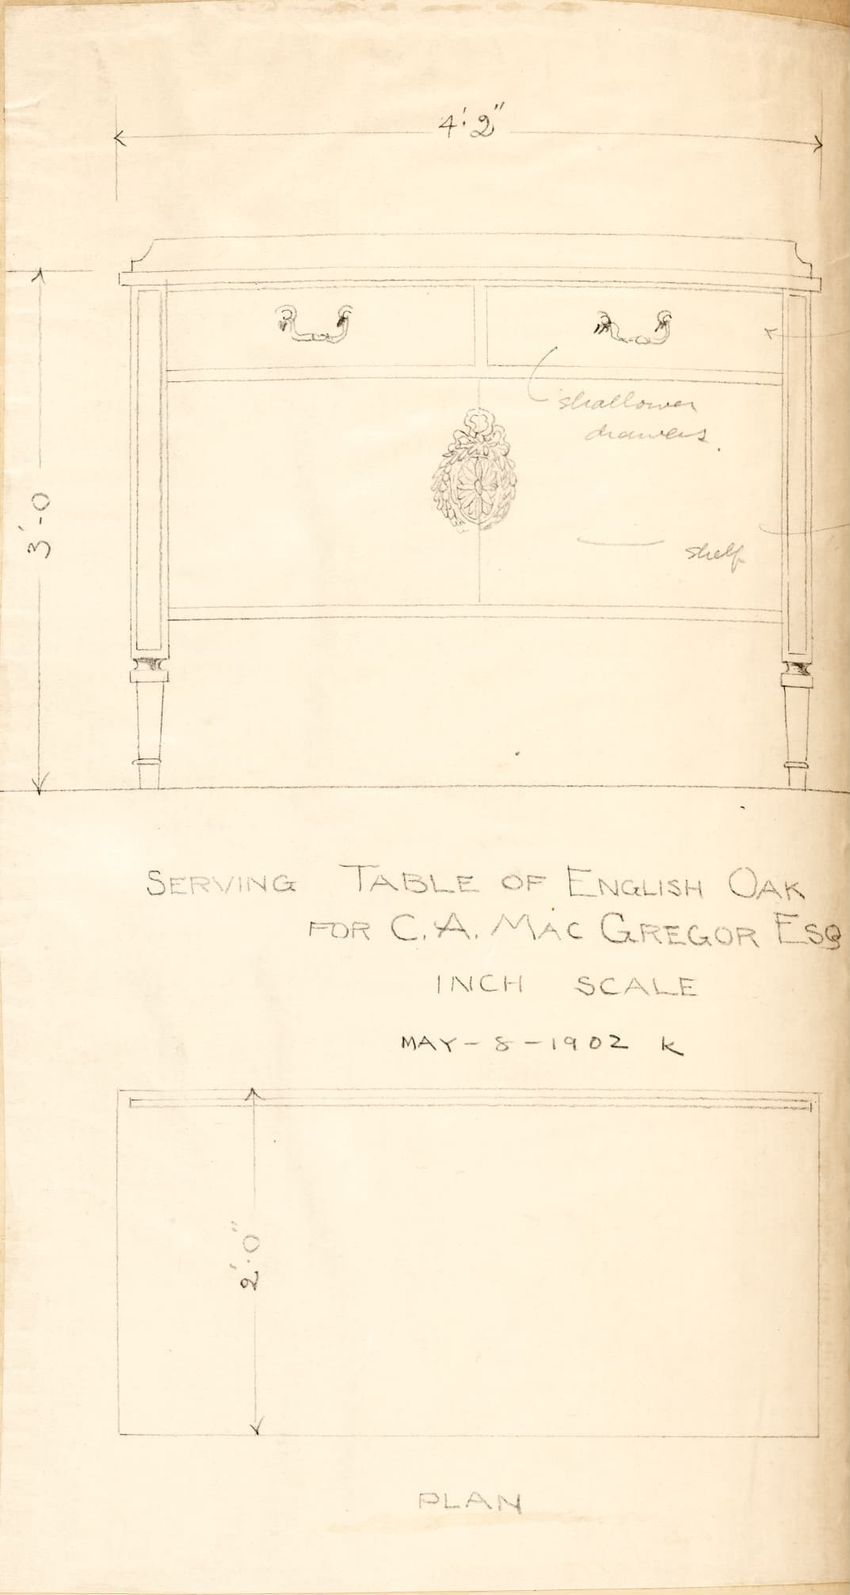 4'.2"
3'-0
shallower
drawers.
shelf
SERVING TABLE OF ENGLISH OAK
FOR C. A. MAC GREGOR ESQ
INCH SCALE
MAY-8-1902 K
2'.0"
PLAN